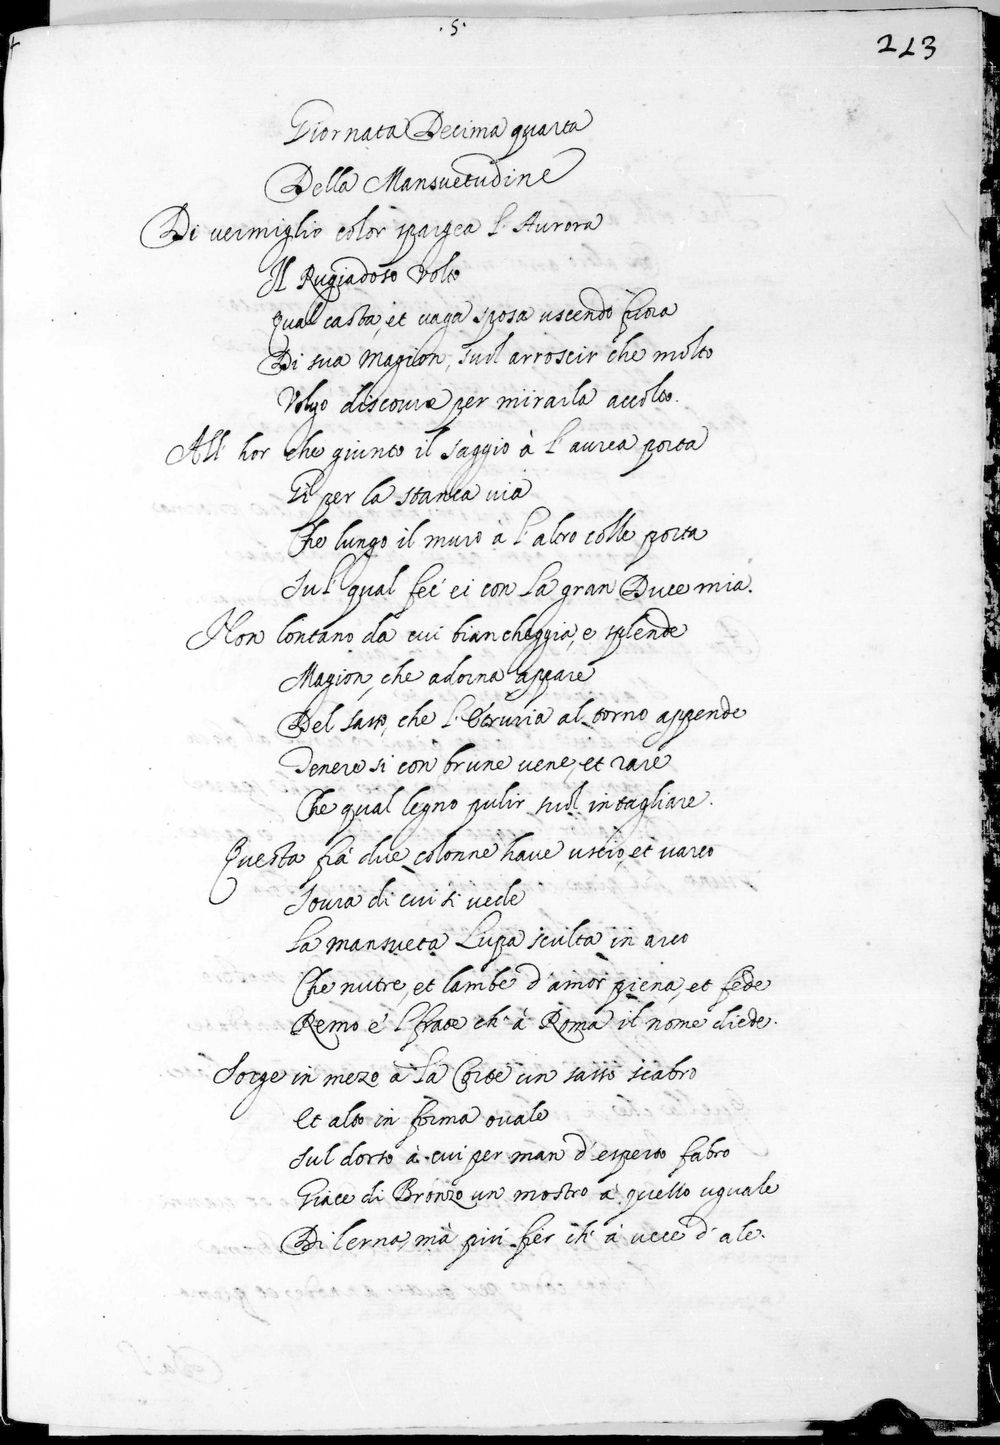 .5.
213
Giornata Decima quarta
Della Mansuetudine
Di vermiglio color spargea l'Aurora
Il Rugiadoso Volto
Qual casta, et vaga sposa uscendo fuora
Di sua Magion, suol arroscir che molto
Volgo discorre per mirarla accolto.
All' hor che giunto il saggio à l'aurea porta
Gì per la stanca via
Che lungo il muro à l'altro colle porta
Sul qual feè ei con la gran Duce mia.
Non lontano da cui biancheggia, e splende
Magion, che adorna appare
Del sasso, che l'Etruria al torno appende
Tenere si con brune vene, et rare
Che qual legno pulir suol intagliare.
Questa frà due colonne have uscio, et varco
Soura di cui si vede
La mansueta Lupa sculta in arco
Che nutre, et lambe d'amor piena, et fede
Remo e 'l frate ch' à Roma il nome diede.
Sorge in mezo à la Corte un sasso scabro
Et alto in forma ovale
Sul dorso à cui per man d'esperto fabro
Giace di Bronzo un mostro à quello uguale
Di lerna, mà più fier ch' à vece d'ale.